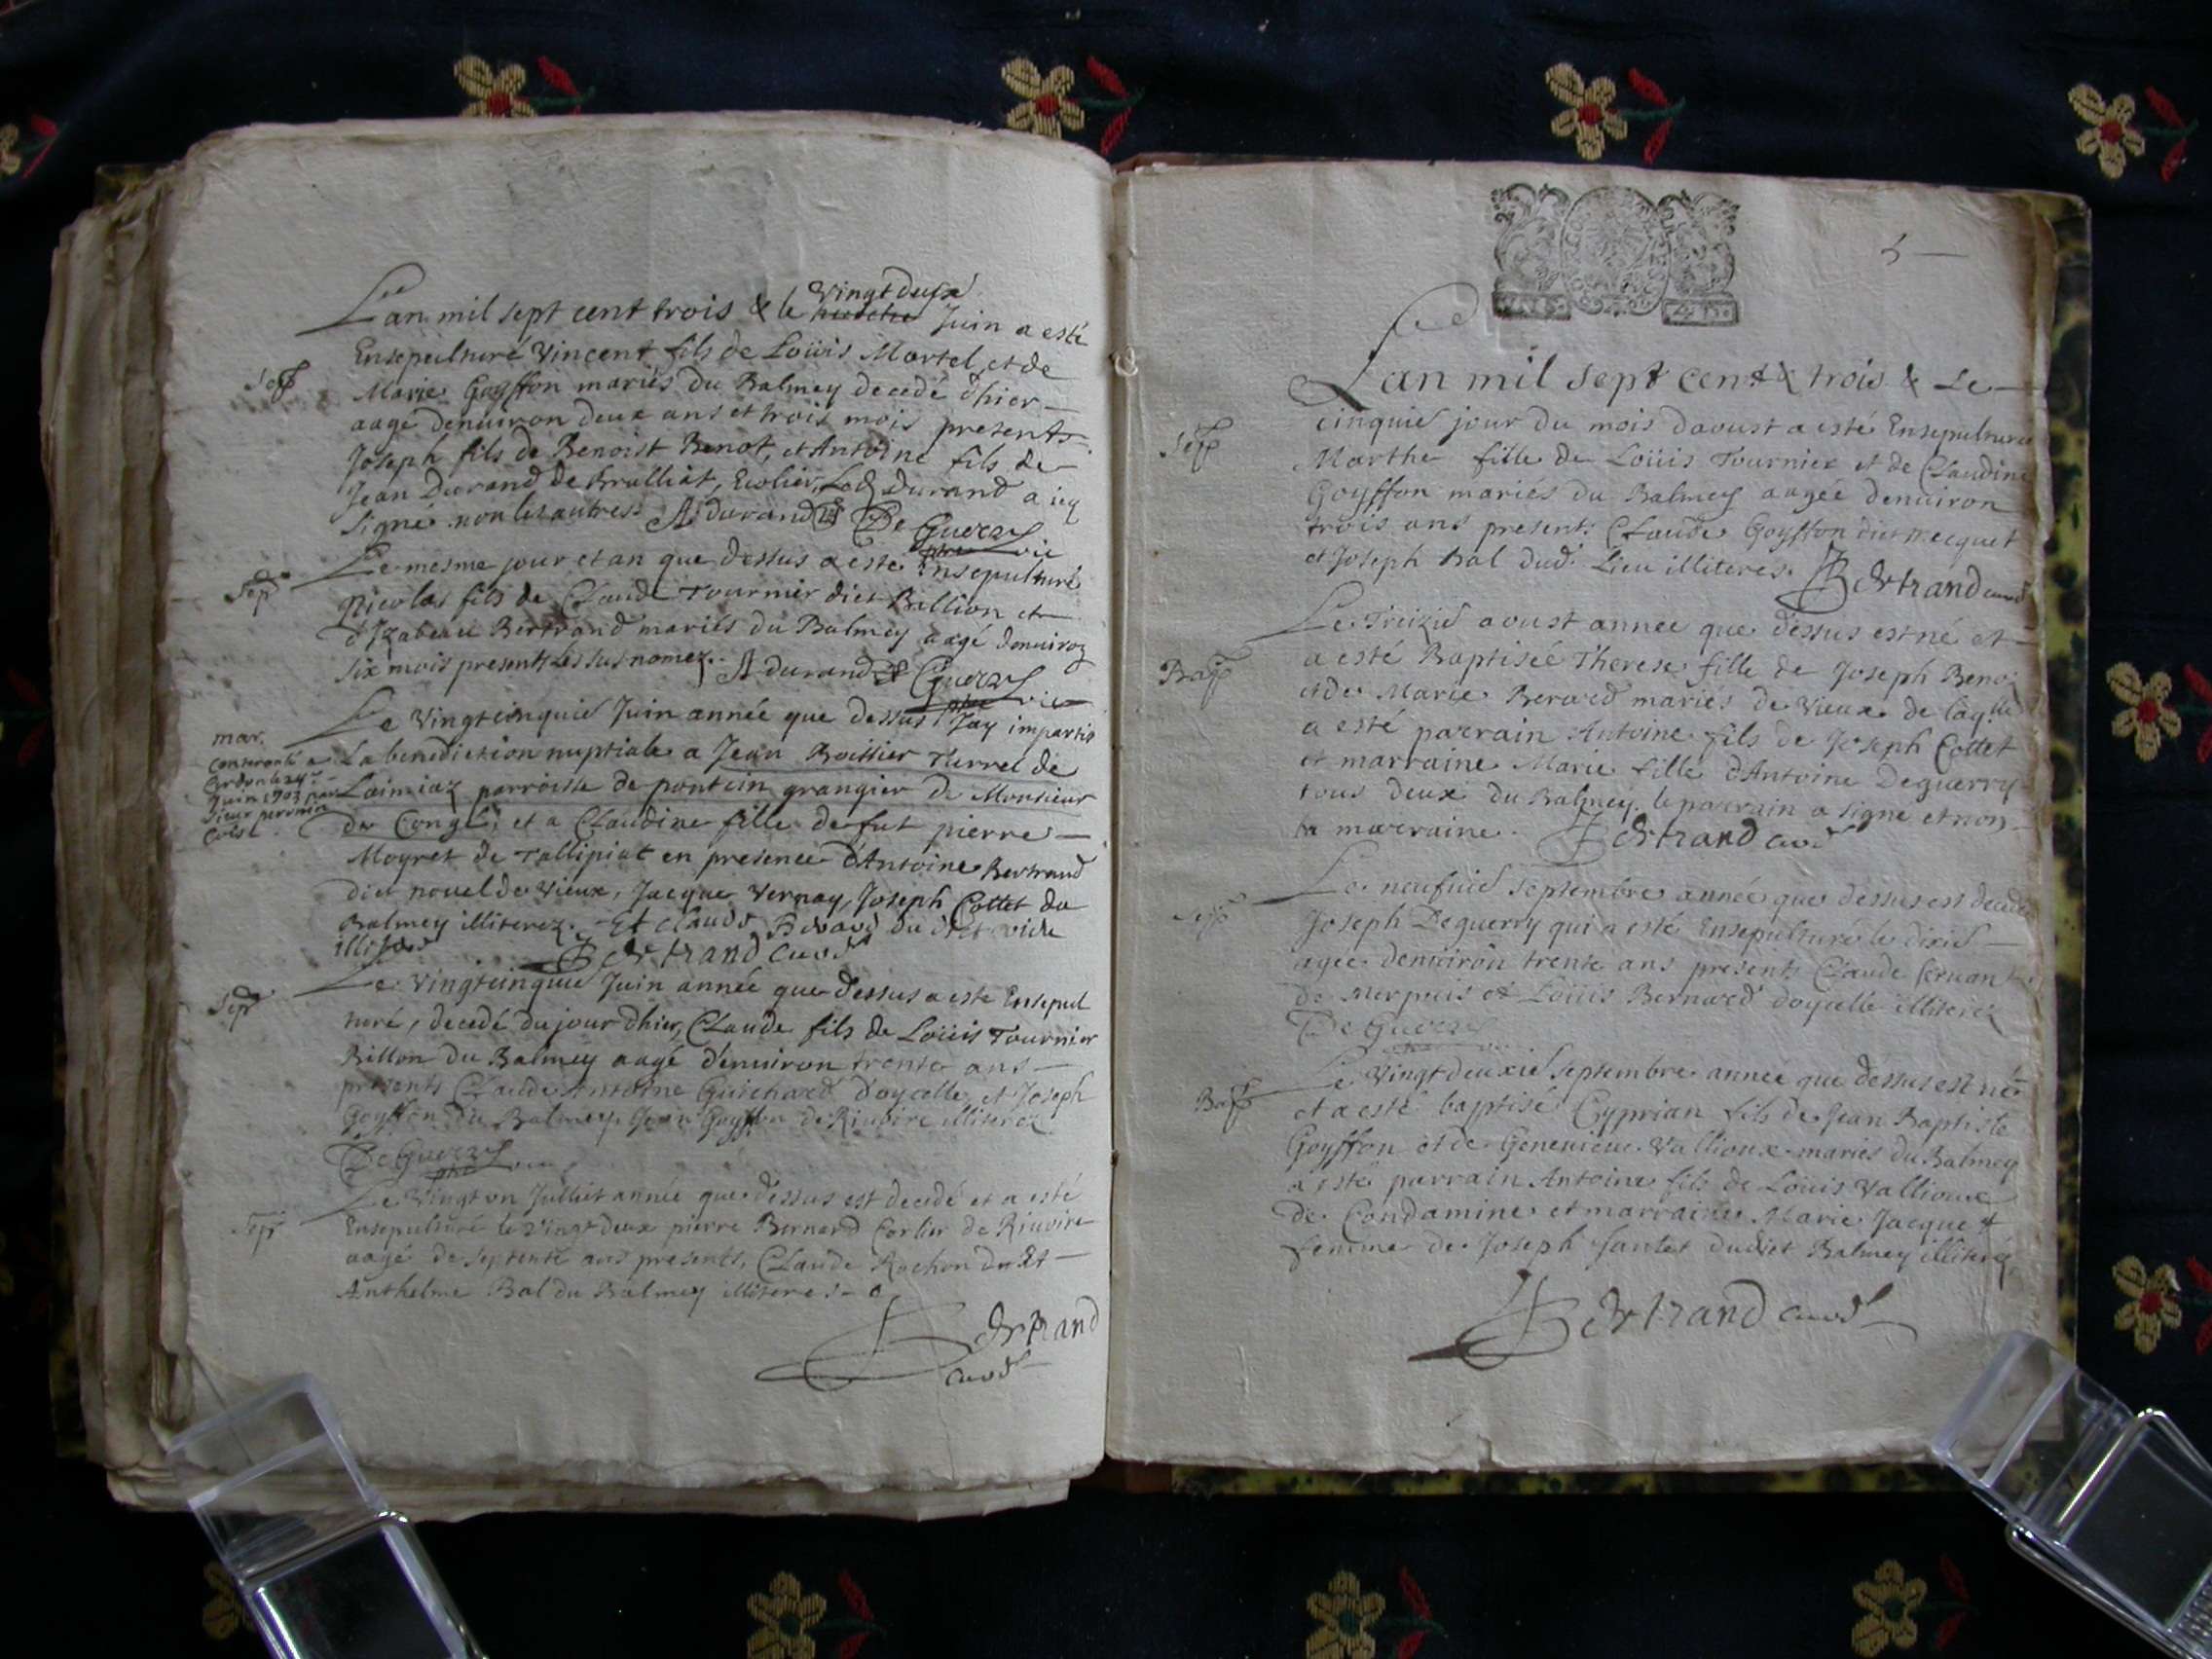 Lan mil sept cent trois & le vingtdeux Juin a esté
Sep
Ensepulturé Vincent fils de Loüis Martel, et de
Marie Goyffon mariés du Balmey decedé d'hier
aagé denuiron deux ans et trois mois presents
Joseph fils de Benoist Benot, et Antoine fils de
Jean Durand de Brulliat, Ecolier, Led. durand a icy
signé non les autres. A durand De Guerry
vic
Sep
Le mesme jour et an que dessus a esté Ensepulturé
Nicolas fils de Claude Tournier dict Billion et
d'Izabeau Bertrand mariés du Balmey aagé denuiron
six mois presents les susnomez. A durand Guerry
vic
mar.
Le Vingtcinquie Juin année que dessus Jay imparti
La benediction nuptiale a Jean Boissier Therret de
Laimiaz parroisse de pontcin grangier de Monsieur
de Congé, et a Claudine fille de fut pierre
Moyret de Tallipiat en presence d'Antoine Bertrand
dict nouel de Vieux, Jacque Vernay, Joseph Cottet du
Balmey illiterez. Et Claude Berard du dict vieu
Bertrand curé
Sep
Le Vingtcinquie Juin année que dessus a esté Ensepul
turé, decedé du jour d'hier, Claude fils de Loüis Tournier
Billon du Balmey aagé d'enuiron trente ans
presents Claude Antoine Guichard d'oycelle et Joseph
Goyffon du Balmey. Jean Goyffon de Riuoire illiterez
De Guerry
Sep
Le Vingt un Julliet année que dessus est decedé et a esté
Ensepulturé le vingtdeux pierre Bernard Corlier de Riuoire
aagé de septente ans presents, Claude Rochon du Et
Anthelme Bal du Balmey illiteres
Bertrand
curé
5
Lan mil sept cent & trois & Le
Sep
cinquie jour du mois daoust a esté Ensepulturee
Marthe fille de Loüis Tournier et de Claudine
Goyffon mariés du Balmey aagée denuiron
trois ans present. Claude Goyffon dict
et Joseph Bal dud. Lieu illiteres. Bertrand curé
Le Treizie aoust annee que dessus est né et
Bap
a esté Baptiseé Therese fille de Joseph Beno
et de Marie Berard mariés de Vieux de laq.lle
a esté parrain Antoine fils de Joseph Cottet
et marraine Marie fille d'Antoine Deguerry
tous deux du Balmey. le parrain a signe et non
la marraine. Bertrand curé
Sep
Le neufuie septembre année que dessus est decedé
Joseph Deguerry qui a esté Ensepulturé le dixie
agee denuiron trente ans presents Claude seruant
de Merpuis et Loüis Bernard d'oycelle illiterez
De Guerry
Bap
Le Vingtdeuxie septembre année que dessus est né
et a esté baptisé Cyprian fils de Jean Baptiste
Goyffon et de Geneuieue Vallioux mariés du Balmey
a esté parrain Antoine fils de Loüis Vallioux
de Condamine et marraine Marie Jacque
femme de Joseph Jantet dudict Balmey illiterez
Bertrand curé